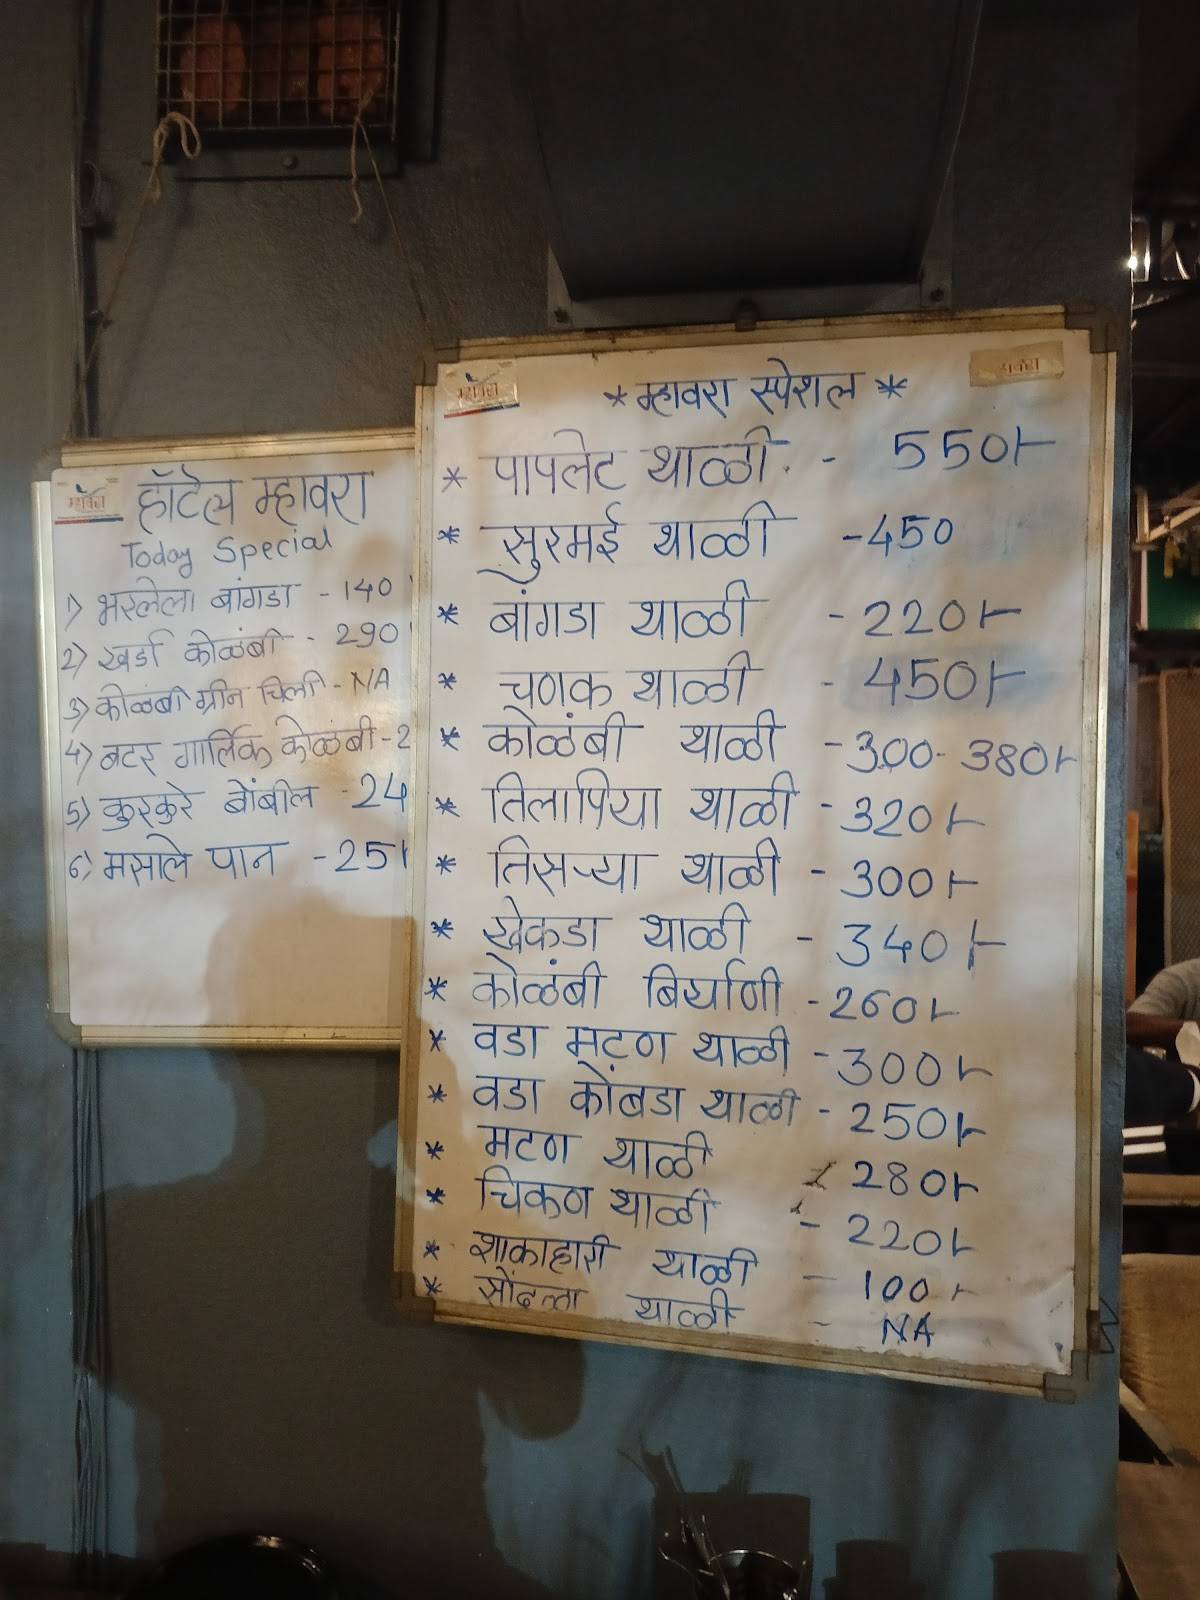 म्हावरा
हॉटेल म्हावरा
Today Special
1) भरलेला बांगडा - 140
2) खर्डा कोळंबी - 290
3) कोळंबी ग्रीन चिली - NA
4) बटर गार्लिक कोळंबी - 2
5) कुरकुरे बोंबील - 24
6) मसाले पान - 25/-
म्हावरा
म्हावरा
* म्हावरा स्पेशल *
* पापलेट थाळी - 550/-
* सुरमई थाळी - 450
* बांगडा थाळी - 220/-
* चणक थाळी - 450/-
* कोळंबी थाळी - 300 - 380/-
* तिलापिया थाळी - 320/-
* तिसऱ्या थाळी - 300/-
* खेकडा थाळी - 340/-
* कोळंबी बिर्याणी - 260/-
* वडा मटण थाळी - 300/-
* वडा कोंबडा थाळी - 250/-
* मटण थाळी - 280/-
* चिकण थाळी - 220/-
* शाकाहारी थाळी - 100/-
* सौंदळा थाळी - NA